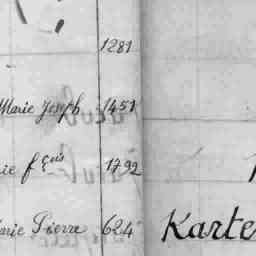 1281
Marie Joseph 1451
ie fçois 1792
arie Pierre 624 Karte